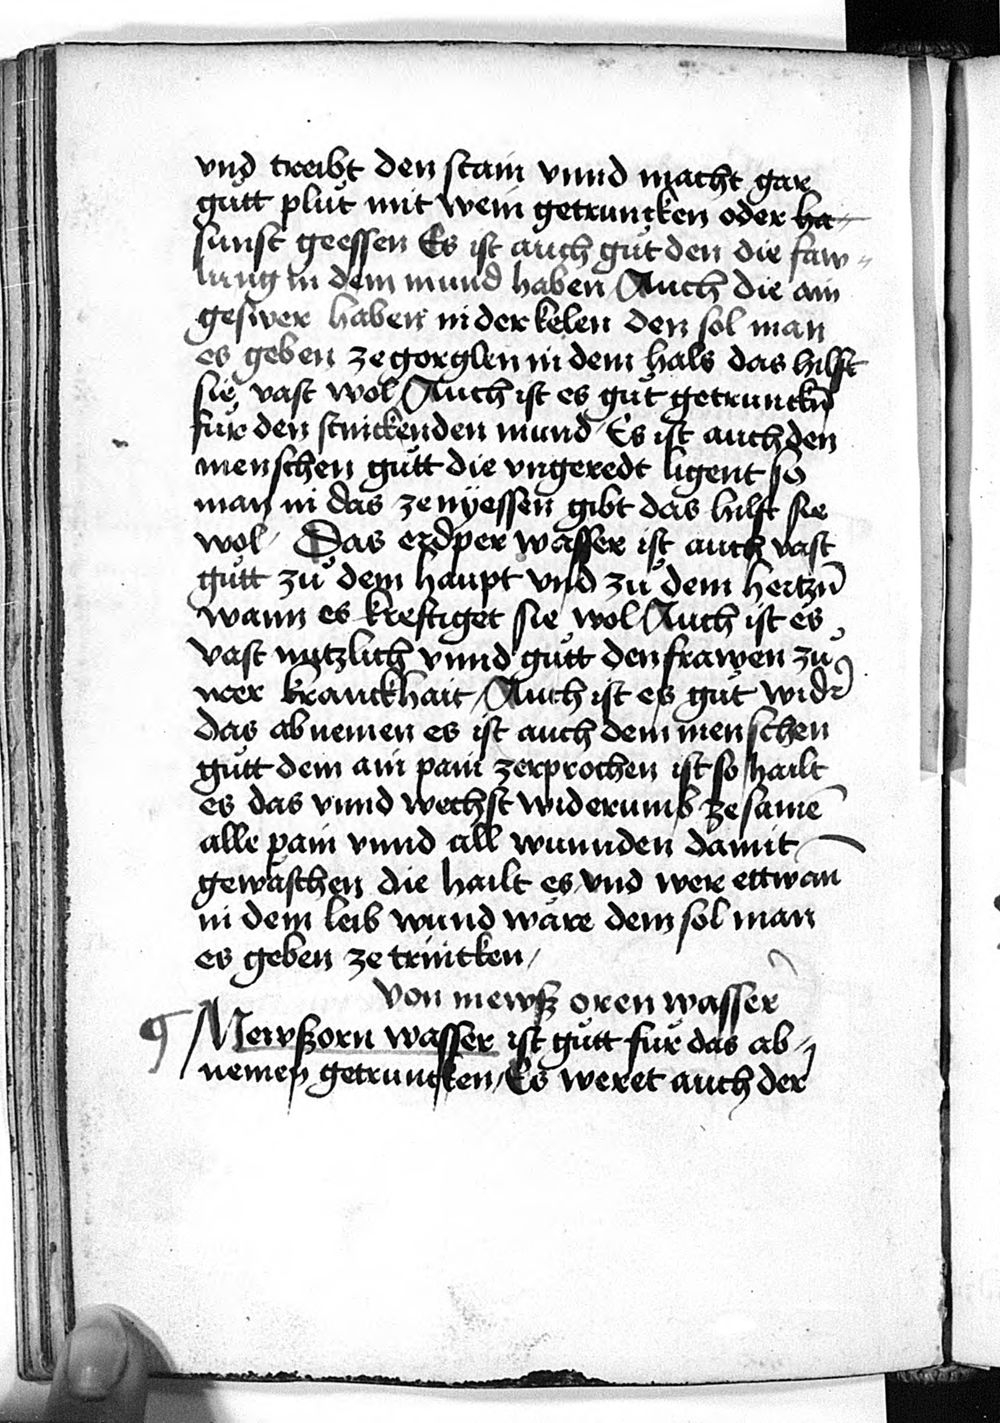 vnd treibt den stain vnnd macht gar
gůtt plůt mit wein getruncken oder ha
sunst geessen Es ist auch gůt den die faw„
lung in dem mund haben / Auch die ain
geswer haben in der kelen den sol man
es geben ze gorglen in dem hals das hilfft
sie vast wol / Auch ist es gůt getrunckñ
fůr den stinckenden mund / Es ist auch den
menschen gůtt die vngeredt ligent so
man in das ze nÿessen gibt das hilft sie
wol / Das erdper wasser ist auch vast
gůtt zů dem haupt vnd zů dem hertzñ
wann es kreftiget sie wol / Auch ist es
vast nutzlich vnnd gůtt den frawen zů
irer kranckhait / Auch ist es gůt wider
das abnemen es ist auch dem menschen
gůtt dem ain pain zerprochen ist so hailt
es das vnnd wechst widerumb ze samē
alle pain vnnd all wunnden damit
gewaschen die hailt es / vnd wer ettwan
in dem leib wund wäre dem sol man
es geben ze trincken /
von mewsz oren wasser
¶ Mewszorn wasser ist gůtt für das ab„
nemen getruncken / Es weret auch der